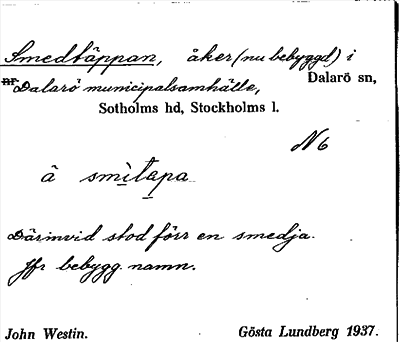 Smedtäppan, åker (nu bebyggd) i
Dalarö sn,
nr Dalarö municipalsamhälle,
Sotholms hd, Stockholms l.
N 6
å smìtapa
Därinvid stod förr en smedja.
Jfr bebygg. namn.
John Westin. Gösta Lundberg 1937.